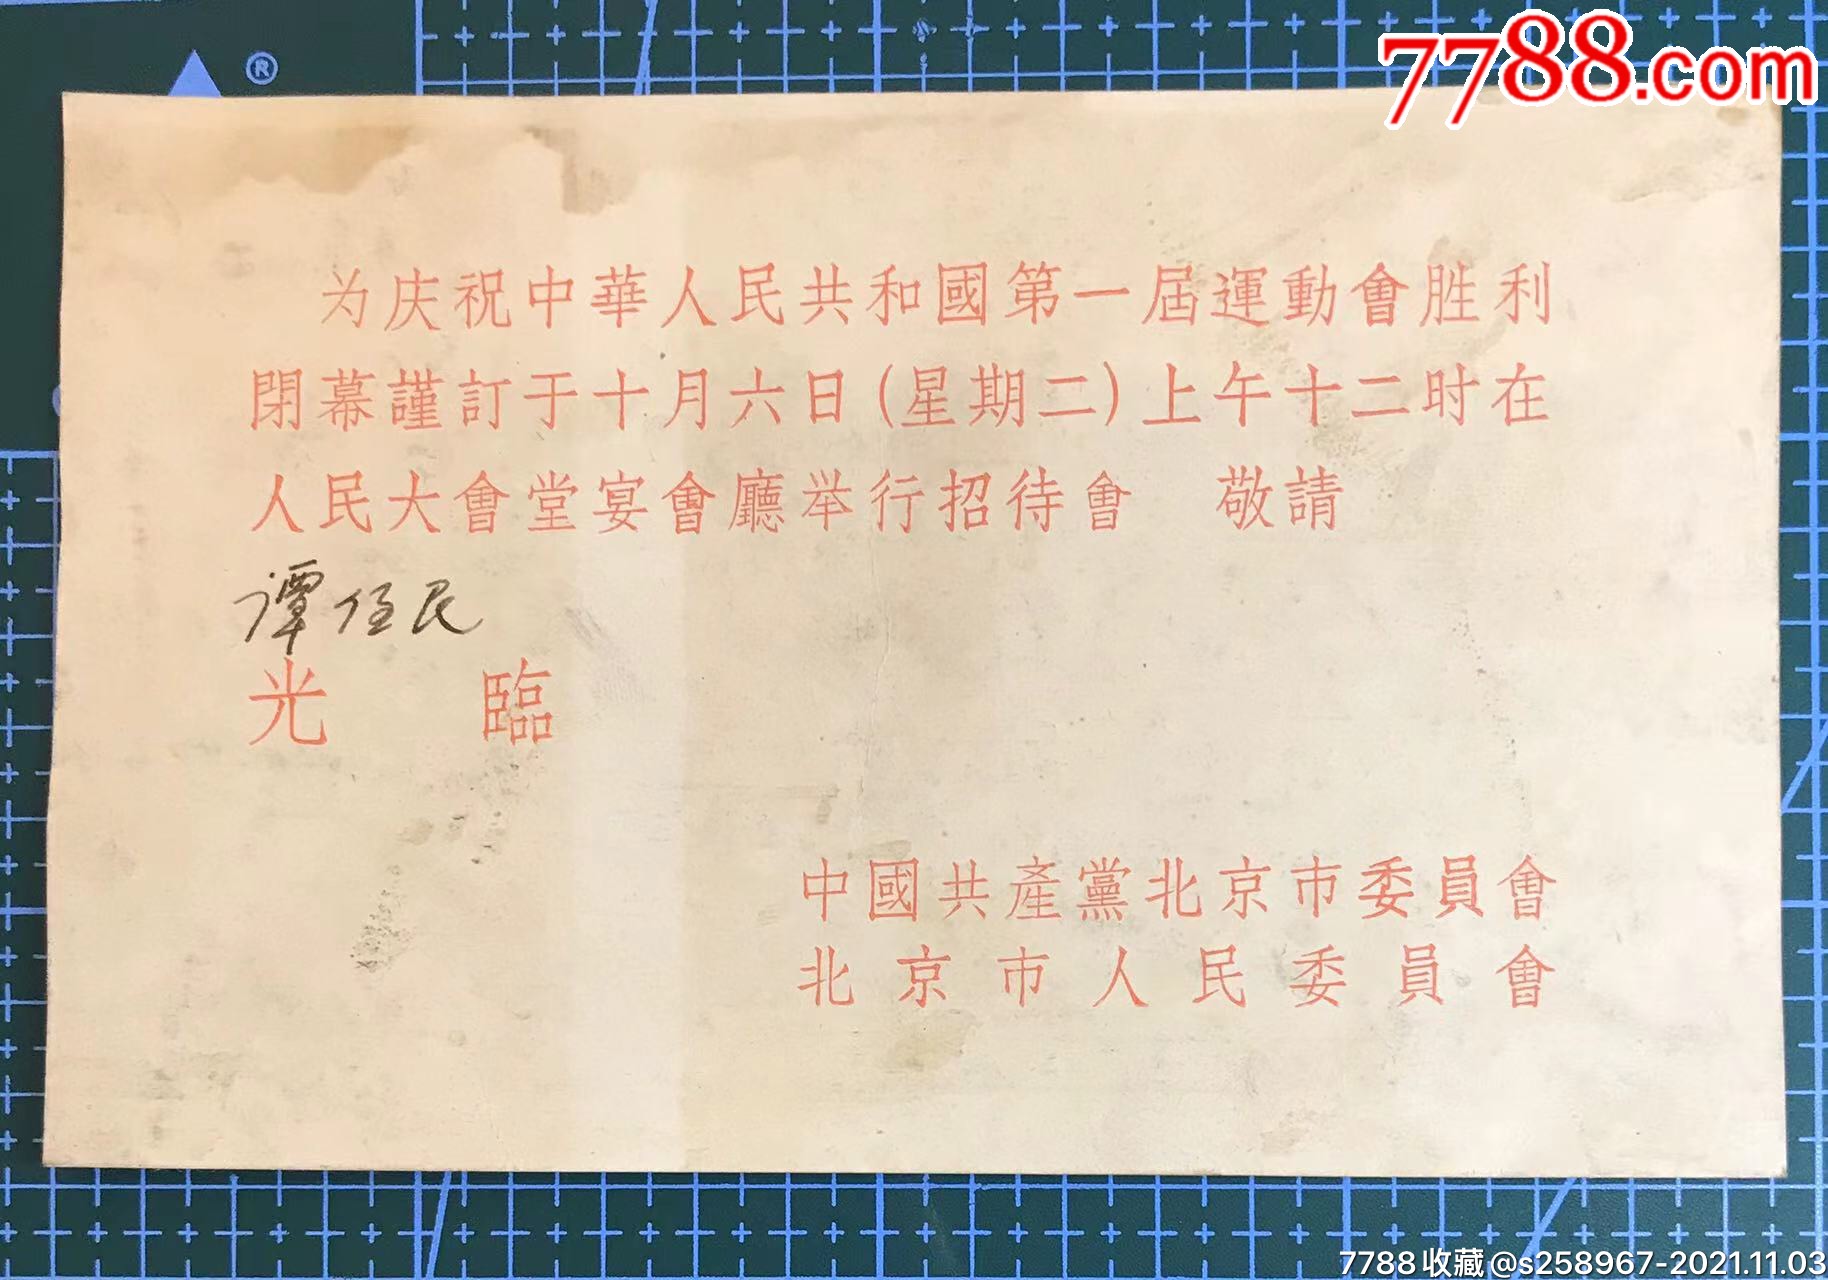 ®
7788.com
为庆祝中華人民共和國第一届運動會胜利
閉幕謹訂于十月六日(星期二)上午十二时在
人民大會堂宴會廳举行招待會　敬請
谭伍民
光　臨
中國共產黨北京市委員會
北京市人民委員會
7788收藏@s258967-2021.11.03